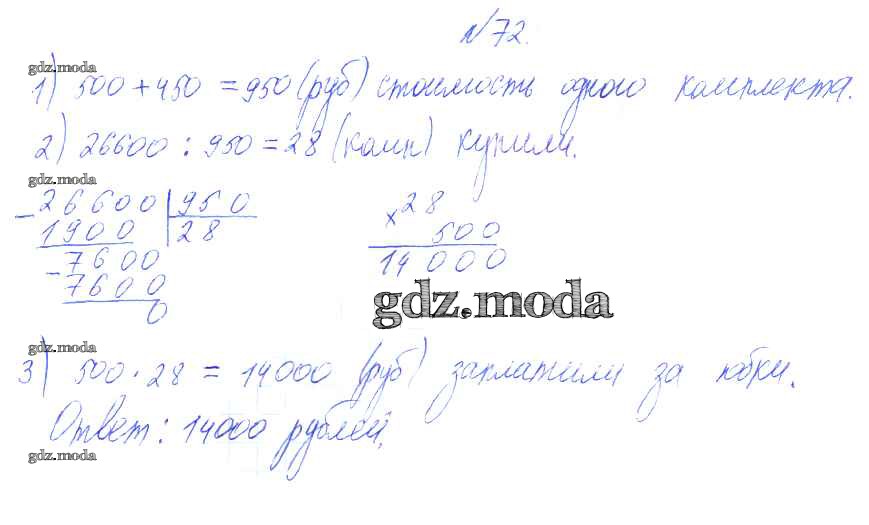 №72.
gdz.moda
1) 500 + 450 = 950 (руб) стоимость одного комплекта.
2) 26600 : 950 = 28 (комп) купили.
gdz.moda
- 26600 | 950
1900 | 28
- 7600
7600
0
× 28
500
14000
gdz.moda
gdz.moda
3) 500 · 28 = 14000 (руб) заплатили за юбки.
Ответ: 14000 рублей.
gdz.moda